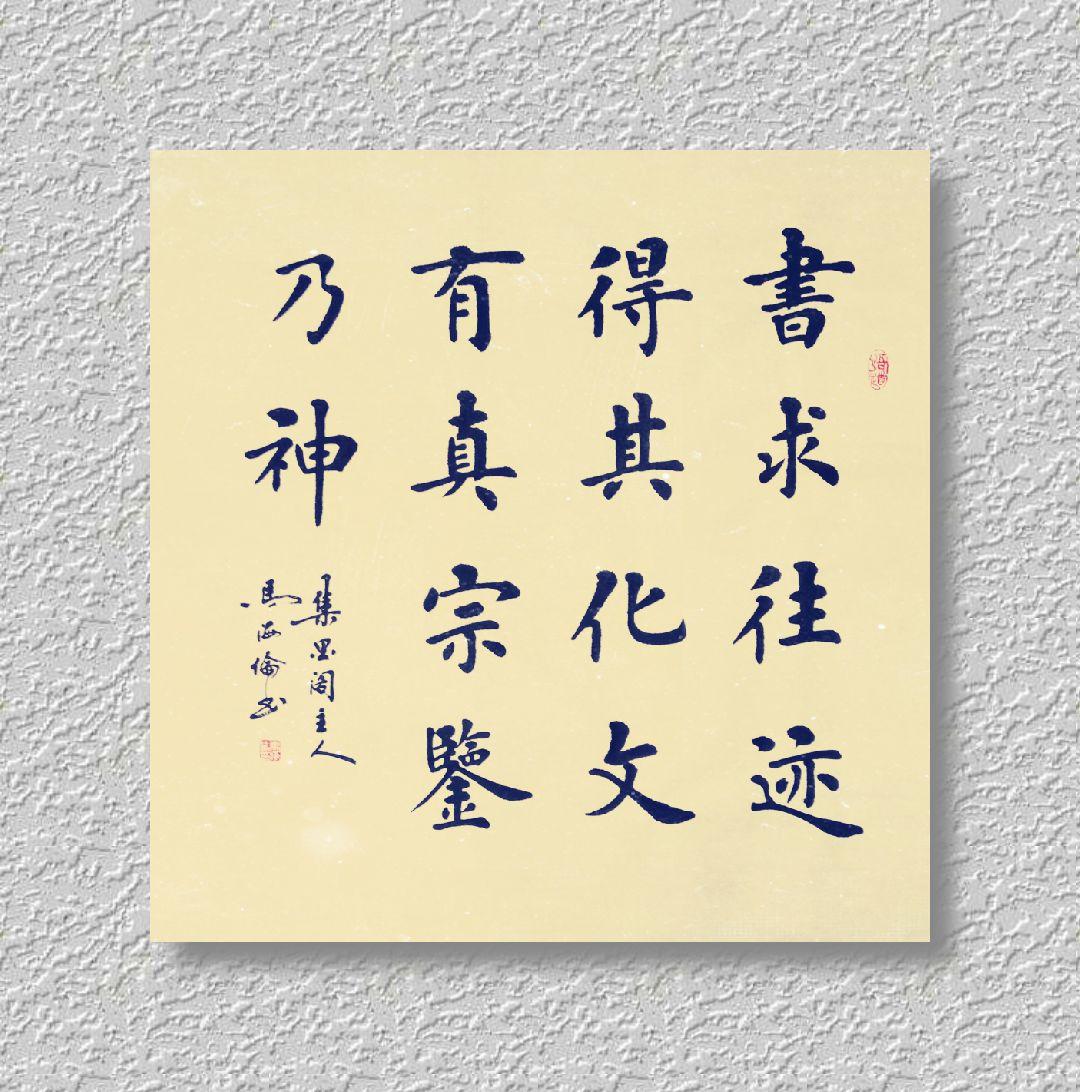 書求往迹
得其化文
有真宗鑒
乃神
集墨阁主人
馬海倫书